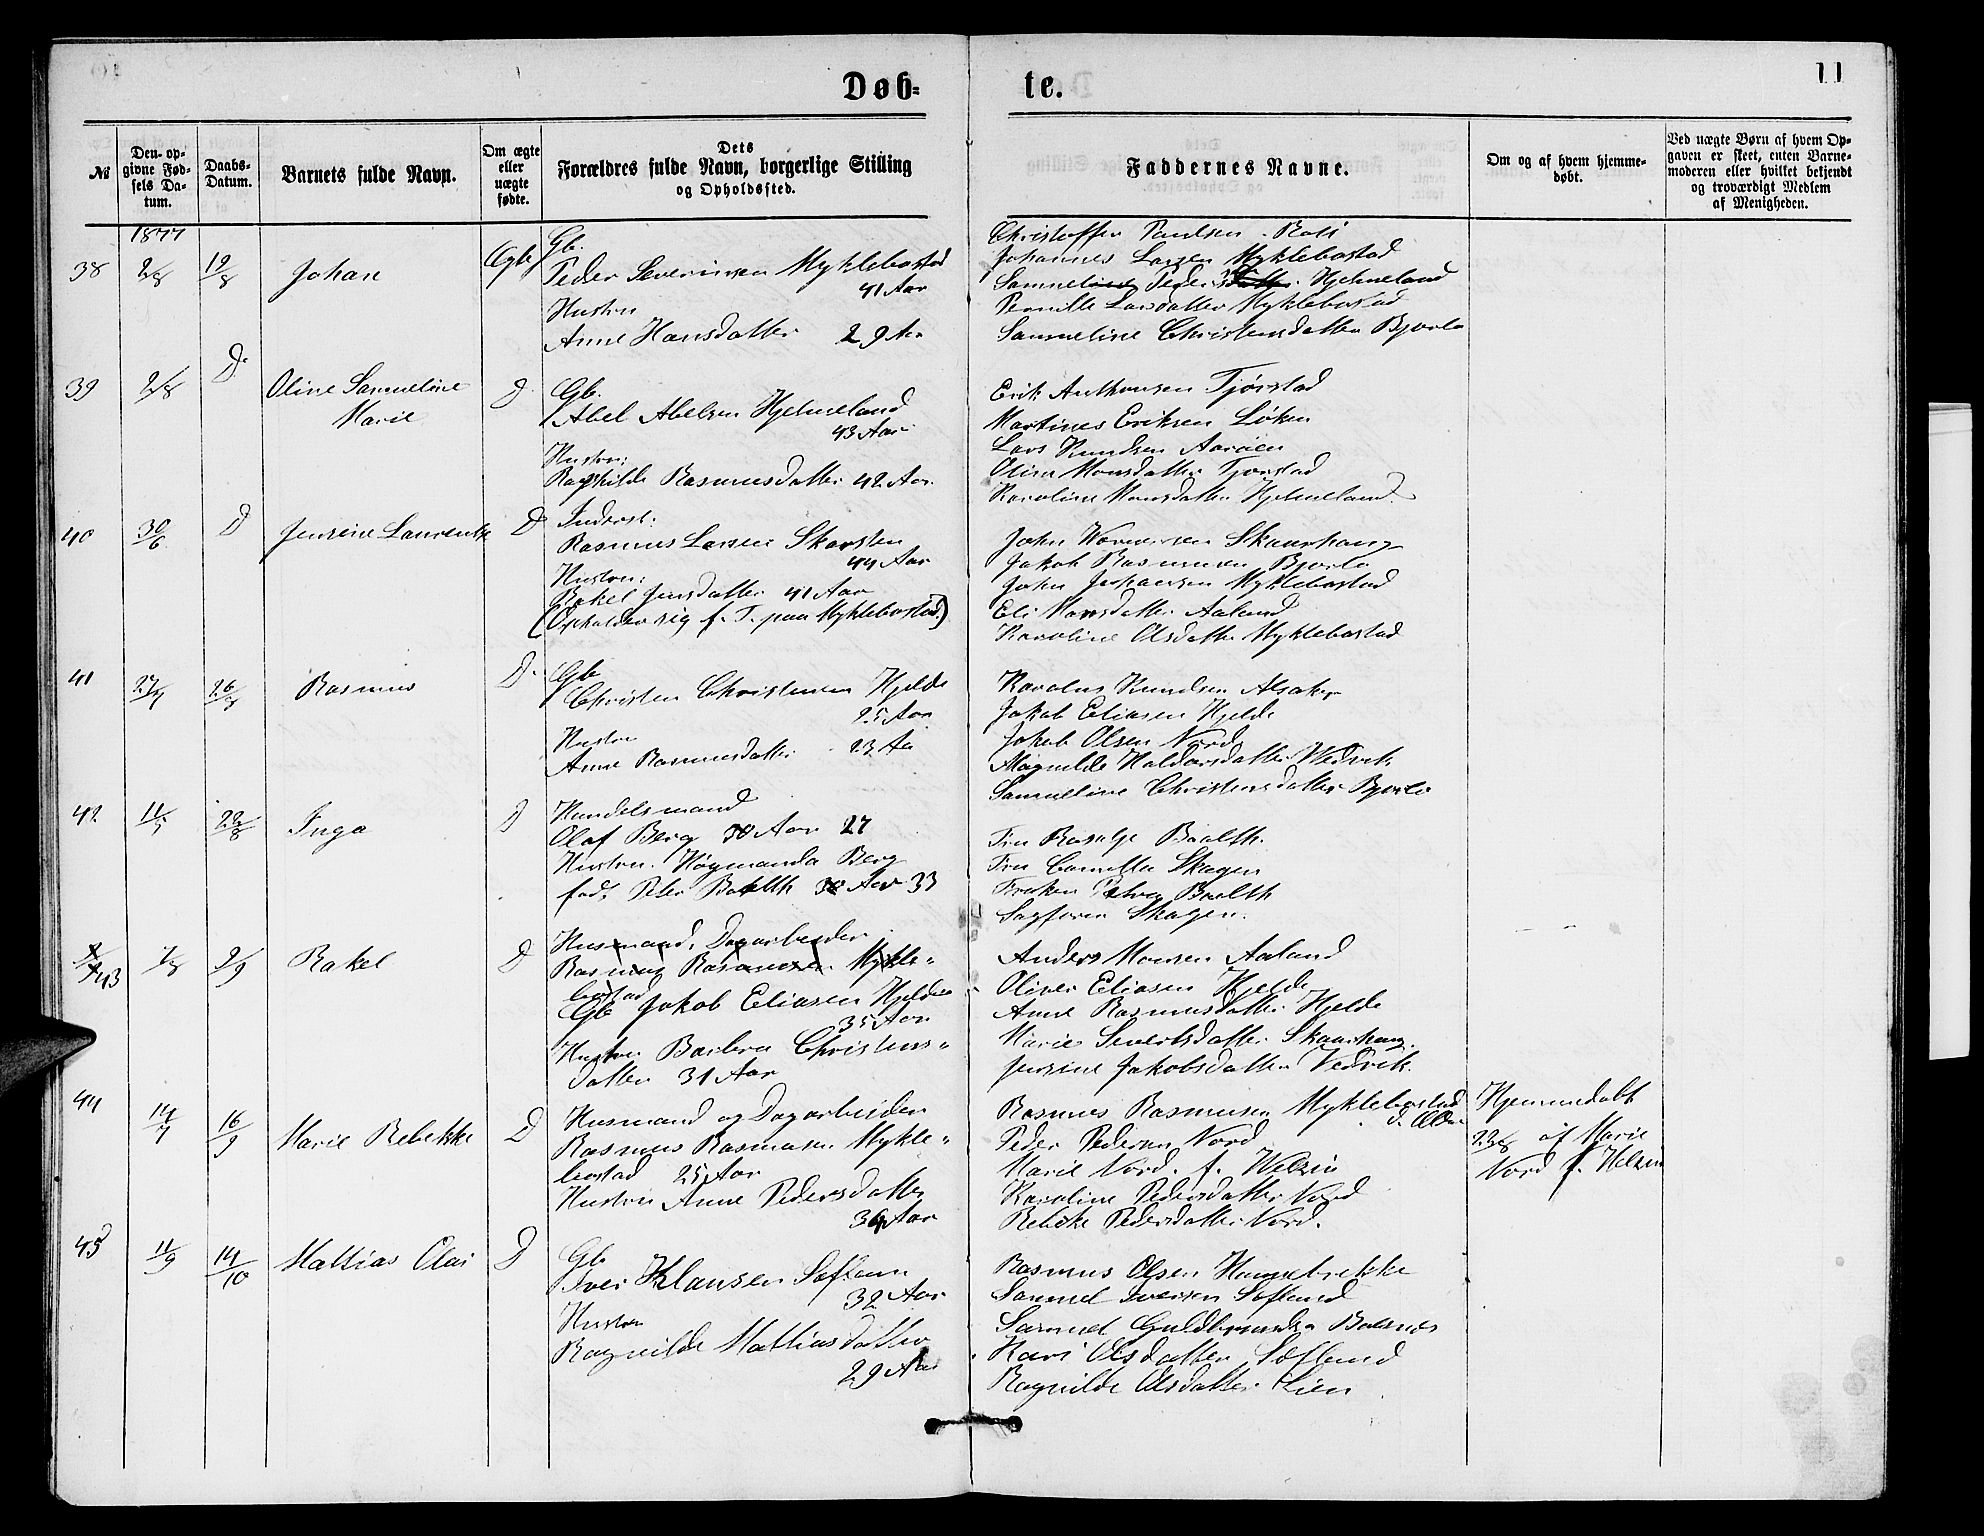 Døb-
te.
11
№
Den opgivne Fødsels Datum.
Daabs-Datum.
Barnets fulde Navn.
Om ægte eller uægte fødte.
Dets Forældres fulde Navn, borgerlige Stilling og Opholdssted.
Faddernes Navne.
Om og af hvem hjemmedøbt.
Ved uægte Børn af hvem Opgaven er skeet, enten Barnemoderen eller hvilket betjendt og troværdigt Medlem af Menigheden.
1877
38 2/8 19/8 Johan Ægte Gb.
Peder Severinsen Myklebostad
41 Aar
Hustru
Anne Hansdatter 29 Aar
Christoffer Paulsen
Johannes Larsen Myklebostad
Hjelmeland
Pernille Larsdatter Myklebostad
Samueline Christensdatter Bjorlo
39 2/8 D. Oline Samueline
Marie
D. Gb.
Abel Abelsen Hjelmeland
43 Aar
Hustru:
Ragnhilde Rasmusdatter 42 Aar
Erik Anthonsen Tjörstad
Martines Eriksen Löken
Lars Knudsen Aaröen
Oline Monsdatter Tjorstad
Karoline Monsdatter Hjelmeland
40 30/6 D Jensine Laurentse D Inderst:
Rasmus Larsen Skorsten
44 Aar
Hustru:
Rakel Jensdatter 41 Aar
(Opholder sig f. T. paa Myklebostad)
John Skaarhaug
Jakob Rasmussen Bjorlo
John Johansen Myklebostad
Eli Monsdatter Aaland
Karoline Olsdatter Myklebostad
41 27/7 26/8 Rasmus D. Gb
Christen Christensen Hjelde
25 Aar
Hustru
Anne Rasmusdatter 23 Aa
Karolus Knudsen Alsaker
Jakob Eliasen Hjelde
Jakob Olsen Nord
Magnilde Haldorsdatter Wedvik
Samueline Christensdatter Bjorlo
42 11/7 22/8 Inga D Handelsmand
Olaf Berg 30 Aar 27
Hustru. Berg
fød. Baalth Aar 33
Fru Baalth.
Fru Camilla Skagen
Frøken Petra Baalth
Sagforer Skagen.
43 7/8 2/9 Rakel D Husmand, Dagarbeider
Rasmus Rasmusen Mykle-
bostad
Gb Jakob Eliasen Hjelde
35 Aar
Hustru Barbra Christens-
datter 31 Aar
Anders Monsen Aaland
Oliver Eliasen Hjelde
Anne Rasmusdatter Hjelde
Marie Sivertsdatter Skaarhaug.
Jensine Jakobsdatter Vedvik.
44 14/7 16/9 Marie Rebekke D Husmand og Dagarbeider
Rasmus Rasmusen Mykle-
bostad 25 Aar
Hustru Anne Pedersdatter
36 Aar
Rasmus Rasmusen Myklebostad
d. Ældre
Peder Pedersen Nord
Marie Nord. f. Welzin
Karoline Pedersdatter Nord
Rebekke Pedersdatter Nord.
Hjemmedøbt
22/8 af Marie
Nord f. Welzin
45 11/9 14/10 Mathias Olai D Gb
Iver Klausen Sofland
32 Aar
Hustru
Ragnilde Mathiasdatter
29 Aar
Rasmus Olsen Hammebrekke
Samuel Iversen Sofland
Samuel Guldbrandsen Baasnes
Kari Olsdatter Sofland
Ragnilde Olsdatter Lien